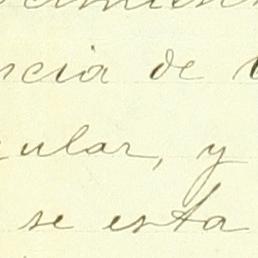 ncia de
ular, y
se esta